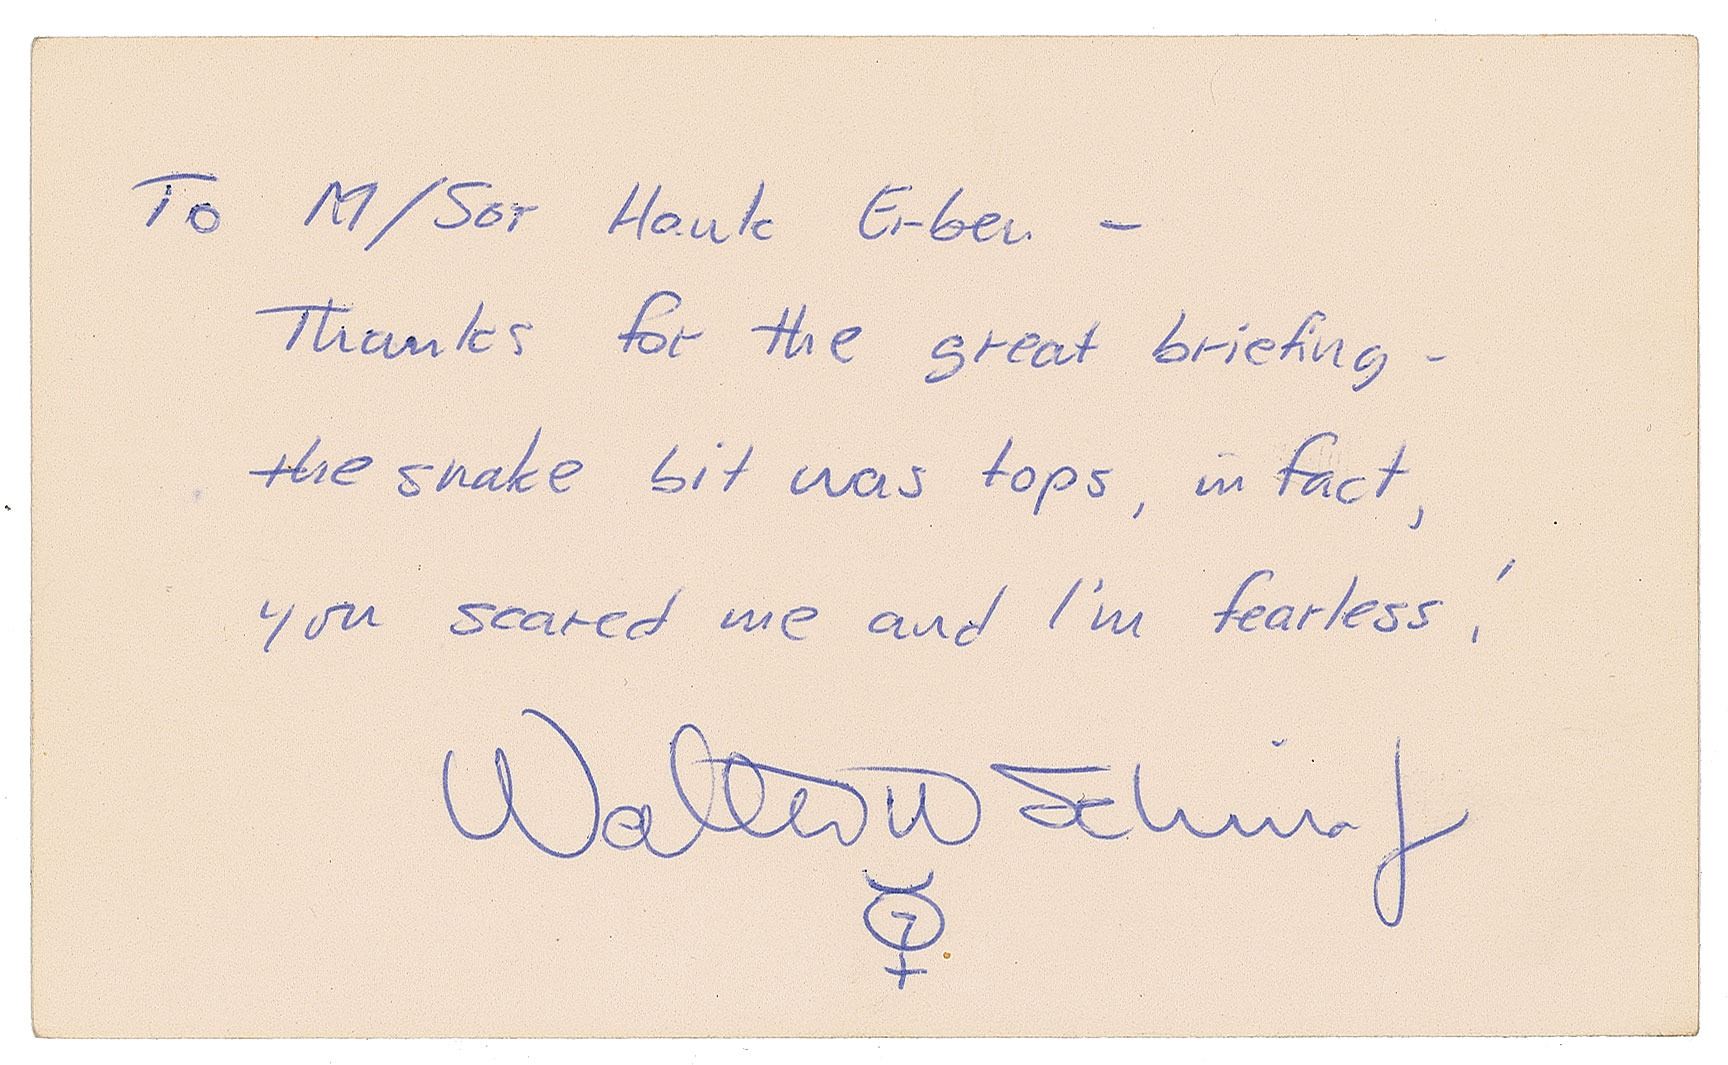 To M/SGT Hank Erben -
Thanks for the great briefing -
the snake bit was tops, in fact,
you scared me and I'm fearless!
Walter M Schirra Jr
7